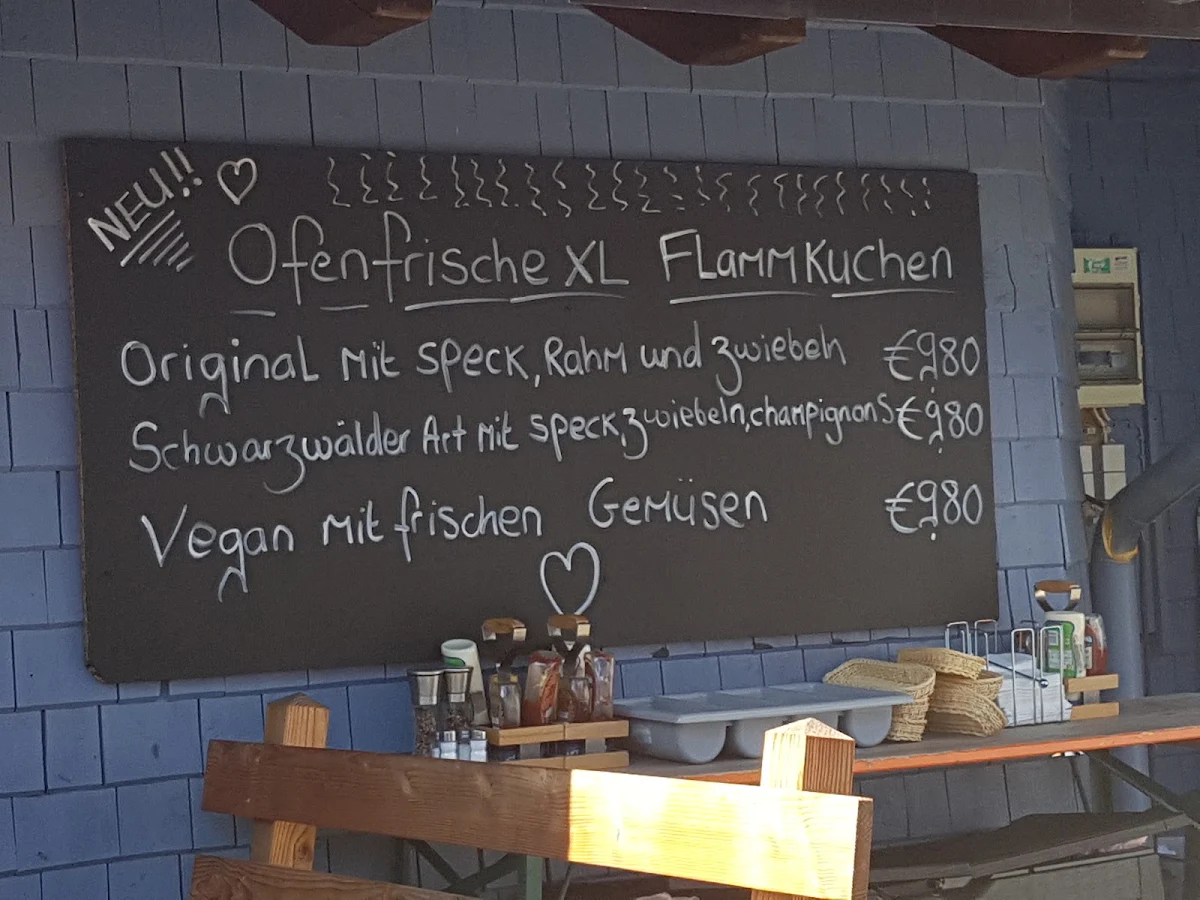 NEU!!
Ofenfrische XL FLammKuchen
Original Mit Speck, Rahm und Zwiebeln €9,80
Schwarzwälder Art Mit Speck, Zwiebeln, champignons €9,80
Vegan Mit frischen Gemüsen €9,80